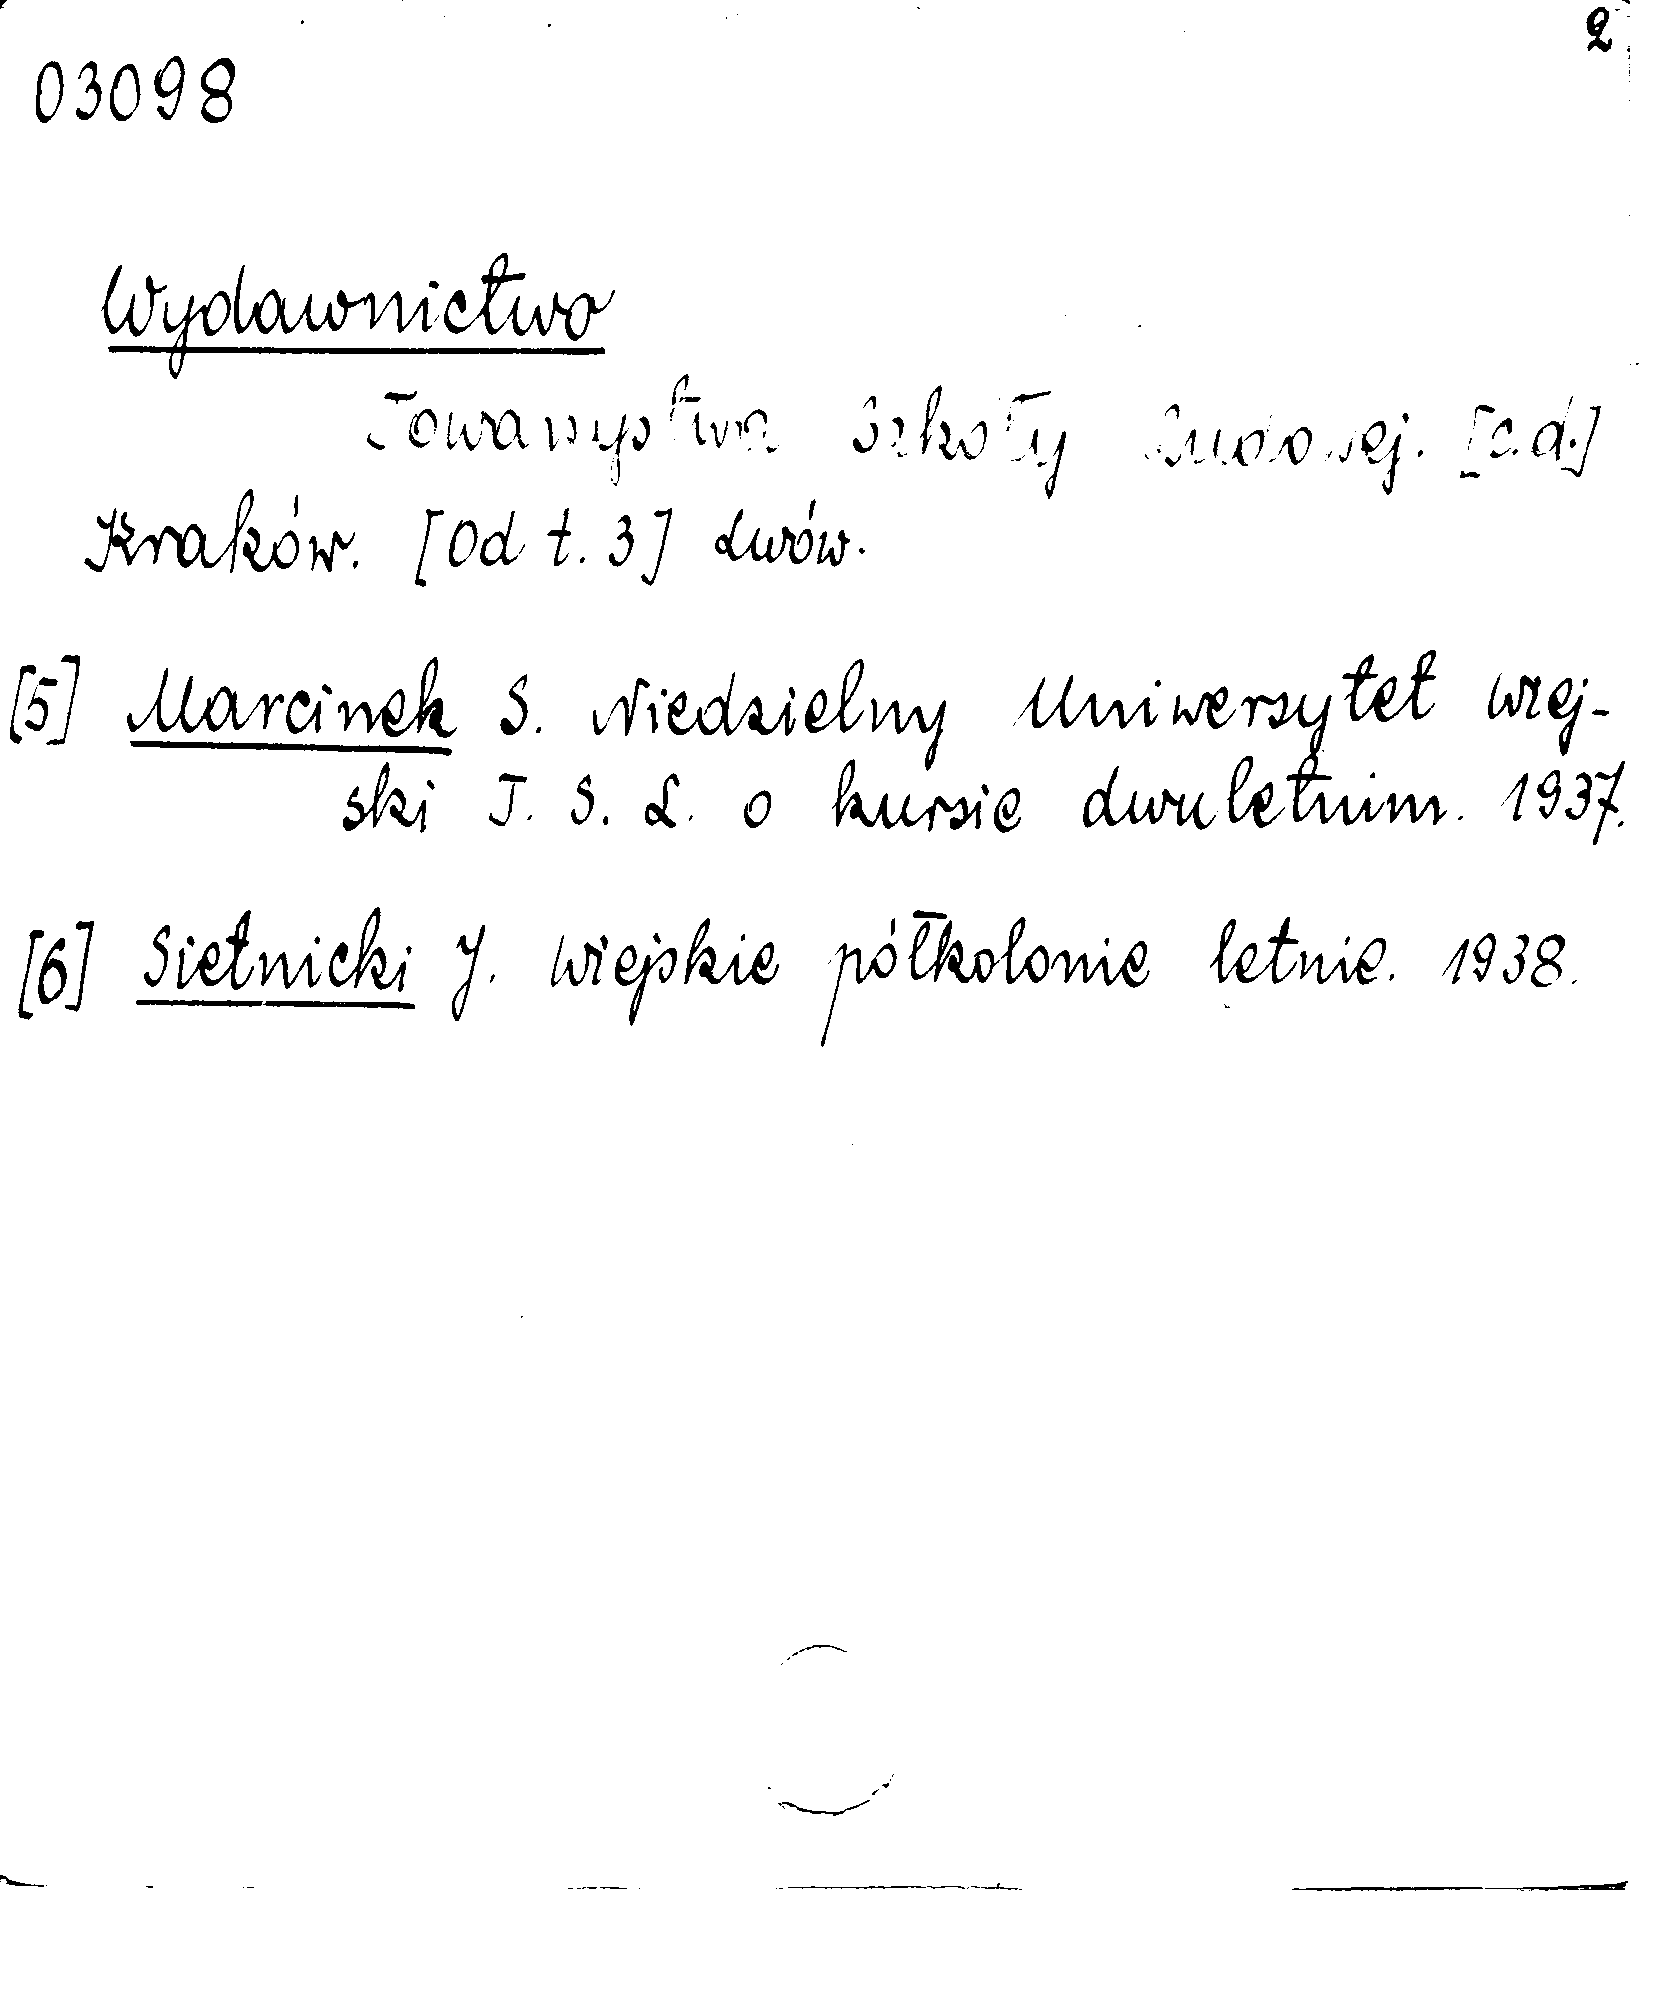 2
03098
Wydawnictwo
Towarzystwa Szkoły Ludowej. [c.d.]
Kraków. [Od t. 3] Lwów.
[5] Marcinek S. Niedzielny Uniwersytet Wiej-
ski T. S. L. o kursie dwuletnim. 1937.
[6] Sietnicki J. Wiejskie półkolonie letnie. 1938.